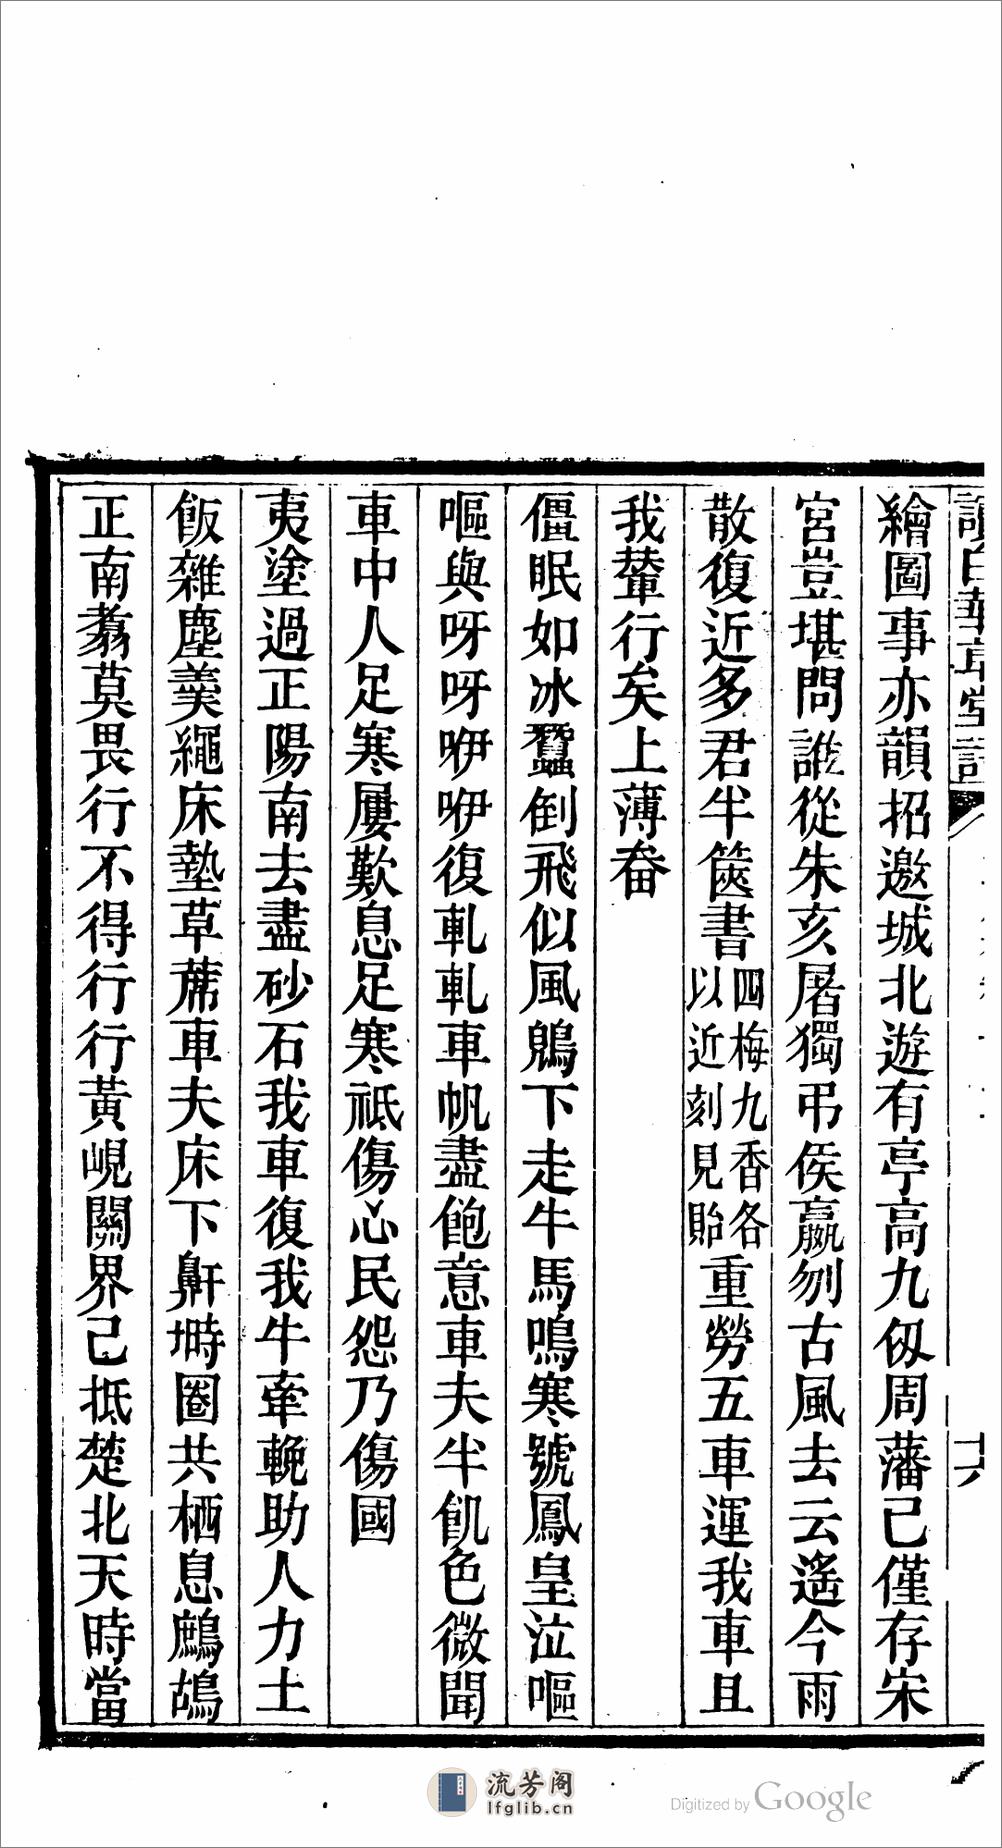 繪圖事亦韻招邀城北遊有亭高九仭周藩已僅存宋
宮豈堪問誰從朱亥屠獨弔侯嬴刎古風去云遙今雨
散復近多君半篋書四梅九香各以近刻見貽重勞五車運我車且
我輦行矣上薄畚
僵眠如冰蠶倒飛似風鷁下走牛馬鳴寒號鳳皇泣嘔
嘔與呀呀咿咿復軋軋車帆盡飽意車夫半飢色微聞
車中人足寒屢歎息足寒祗傷心民怨乃傷國
夷塗過正陽南去盡砂石我車復我牛牽輓助人力土
飯雜塵羹繩床墊草蓆車夫床下鼾塒圈共栖息鷓鴣
正南翥莫畏行不得行行黃峴關界已抵楚北天時當
讀白華草堂詩
十六
流芳阁
lfglib.cn
Digitized by Google